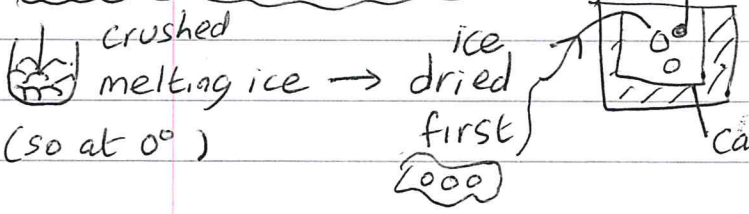 crushed
melting ice → ice dried first
(so at 0°)
Ca